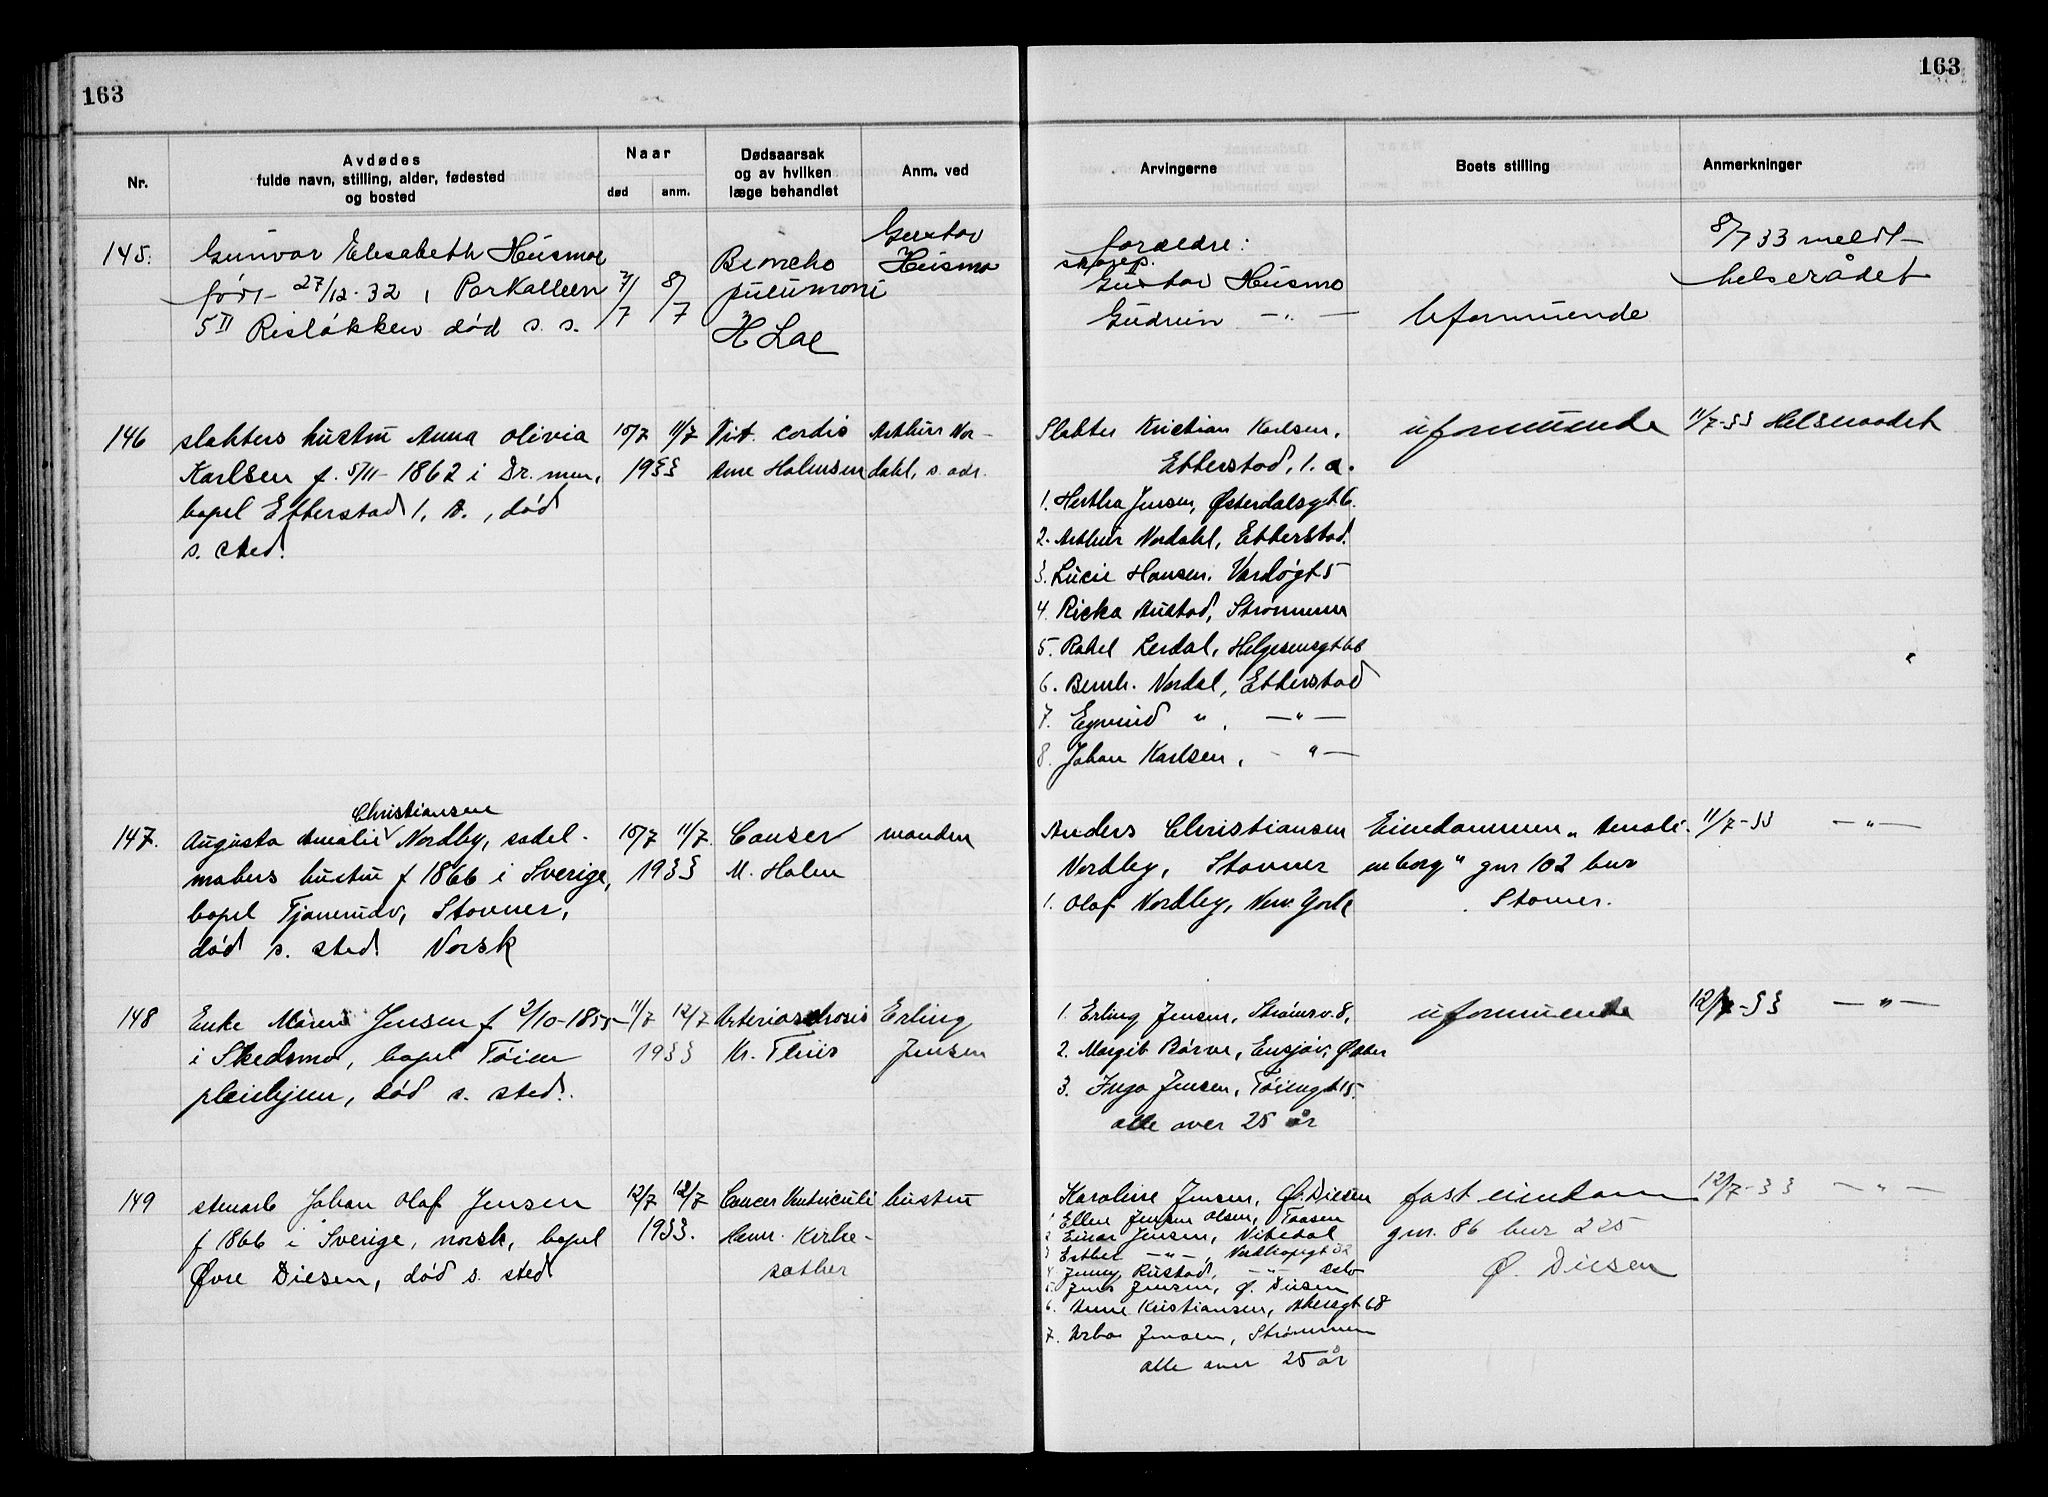 163
163
Nr.
Avdødes
fulde navn, stilling, alder, fødested
og bosted
Naar
død
anm.
Dødsaarsak
og av hvilken
læge behandlet
Anm. ved
Arvingerne
Boets stilling
Anmerkninger
145.
Gunvor Elisabeth Husmoe
født 27/12-32, Parkalleen
5 II Risløkken død s. s.
7/7
8/7
Broncho
pneumoni
H Lae
Gustav
Husmo
foreldre:
Gustav Husmo
Gudrun — " —
Uformuende
8/7 33 meldt
helserådet
146
slakters hustru Anna Olivia
Karlsen f. 5/11-1862 i Dr. men,
bopel Etterstad 1. A., død
s. sted.
10/7 11/7
1933
Vit. cordis
Arne Halvorsen
Arthur Nor-
dahl, s. adr.
Slakter Kristian Karlsen,
Etterstad, 1. a.
1. Hertha Jensen, Østerdalsgt 6.
2. Arthur Nordahl, Etterstad.
3. Lucie Hansen, Vardøgt 5
4. Ricka Austad, Strømmen
5. Rakel Lerdal, Helgesensgt 66
6. Bernh. Nordal, Etterstad
7. Eyvind " , — " —
8. Johan Karlsen, — " —
uformuende
11/7-33 Helseraadet
147.
Christiansen
Augusta Amalie Nordby, sadel-
makers hustru f 1866 i Sverige,
bopel Tjønerudv, Stovner,
død s. sted. Norsk
10/7 11/7.
1933
Canser
M. Holm
manden
Anders Christiansen
Nordby, Stovner
1. Olaf Nordby, New York
Eiendommen "Amali-
enborg" gnr 102 bnr
. Stovner.
11/7-33 — " —
148
Enke Maren Jensen f 2/10-1855
i Skedsmo, bopel Tøien
pleiehjem, død s. sted.
11/7 12/7
1933
Kr. Thiis
Erling
Jensen
1. Erling Jensen, Strømsv. 8,
2. Margit Børve, Ensjøv, Ø. Aker
3. Inga Jensen, Tøiengt 15.
alle over 25 år
uformuende
12/7-33 — " —
149
stenarb Johan Olaf Jensen
f 1866 i Sverige, norsk, bopel
Øvre Diesen, død s. sted
12/7 12/7
1933.
Cancer Ventriculi
Henr. Kirke-
sæther
hustru
Karoline Jensen, Ø. Diesen
1 Ellen Jensen Olsen, Taasen
2 Einar Jensen, Nitedal
3 Esther — " —,
4. Jenny Rustad, — " — Oslo
5. Jens Jensen, Ø. Diesen
6. Anne Kristiansen, Akersgt 68
7. Jensen, Strømmen
alle over 25 år
fast eiendom
gnr. 86 bnr 225
Ø. Diesen
12/7-33 — " —